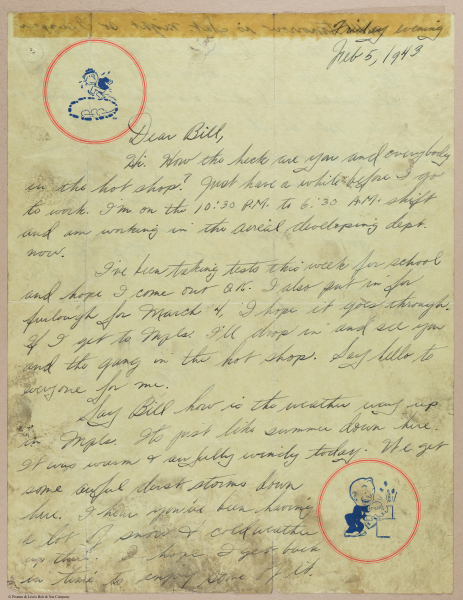 Friday evening
Feb 5, 1943
Dear Bill,
Hi. How the heck are you and everybody
in the hot shop? Just have a while before I go
to work. I'm on the 10:30 P.M. to 6:30 A.M. shift
and am working in the aerial developing dept.
now.
I've been taking tests this week for school
and hope I come out O.K. I also put in for
furlough for March 4, I hope it goes through.
If I get to Mpls. I'll drop in and see you
and the gang in the hot shop. Say hello to
everyone for me.
Say Bill how is the weather way up
in Mpls. It's just like summer down here.
It was warm & awfully windy today. We get
some awful dust storms down
here. I hear you've been having
a lot of snow & cold weather
up there. I hope I get back
in time to enjoy some of it.
© Picture & Lewis